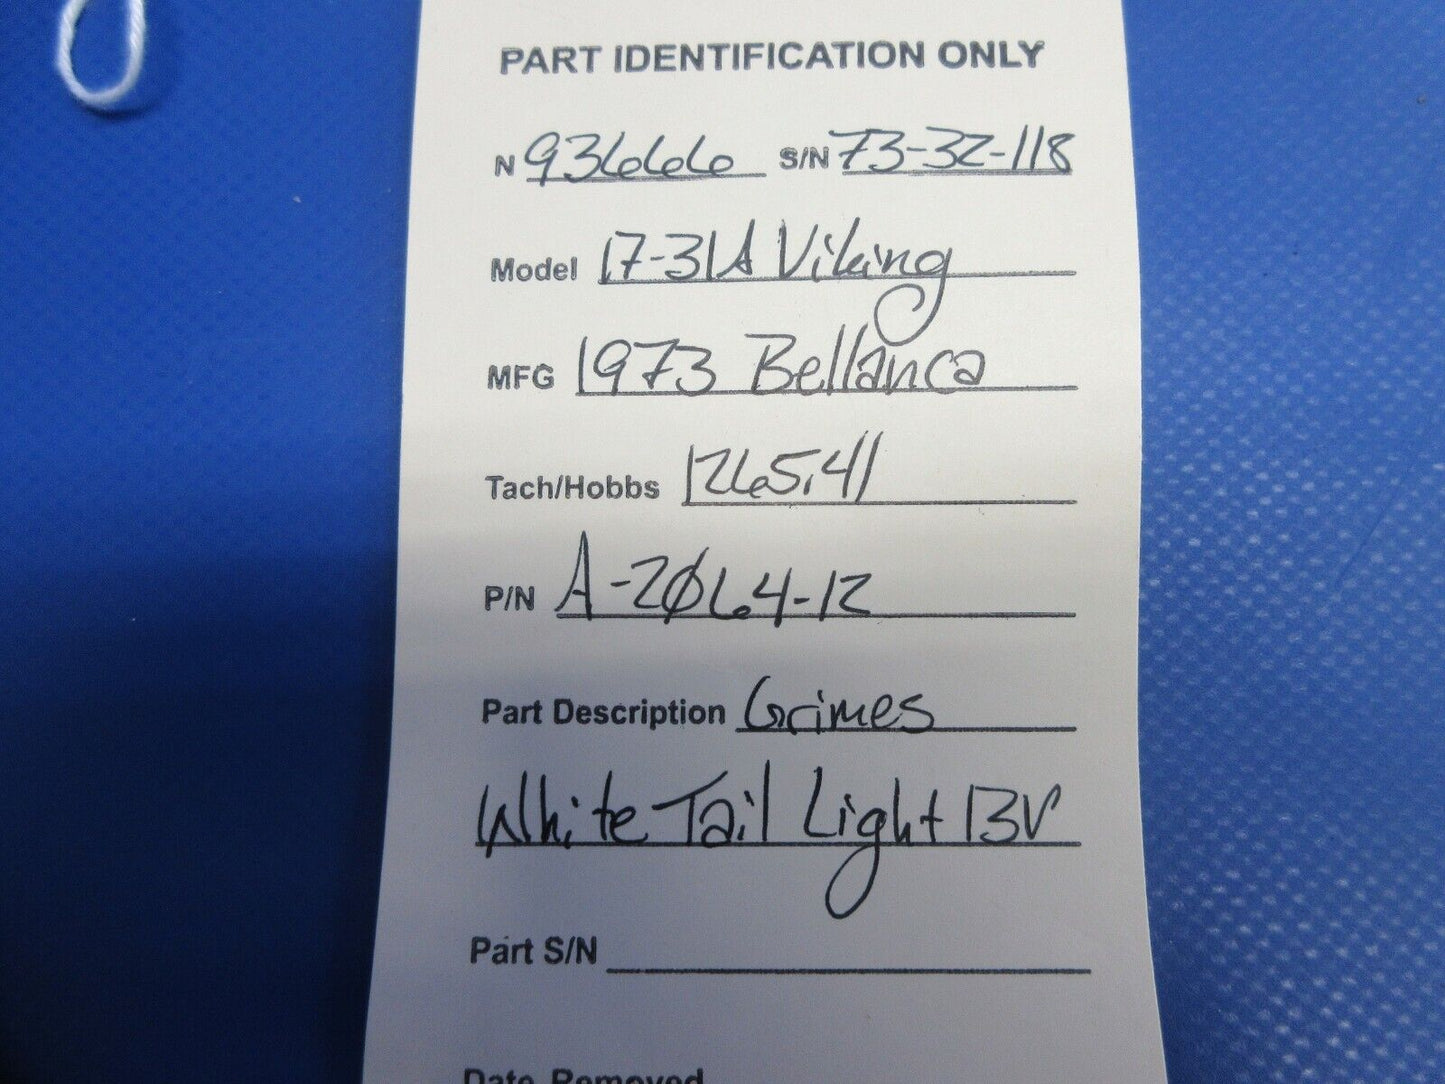 PART IDENTIFICATION ONLY
N 93666 S/N 73-32-118
Model 17-31A Viking
MFG 1973 Bellanca
Tach/Hobbs 1265.41
P/N A-2064-12
Part Description Grimes
White Tail Light 13V
Part S/N
Date Removed